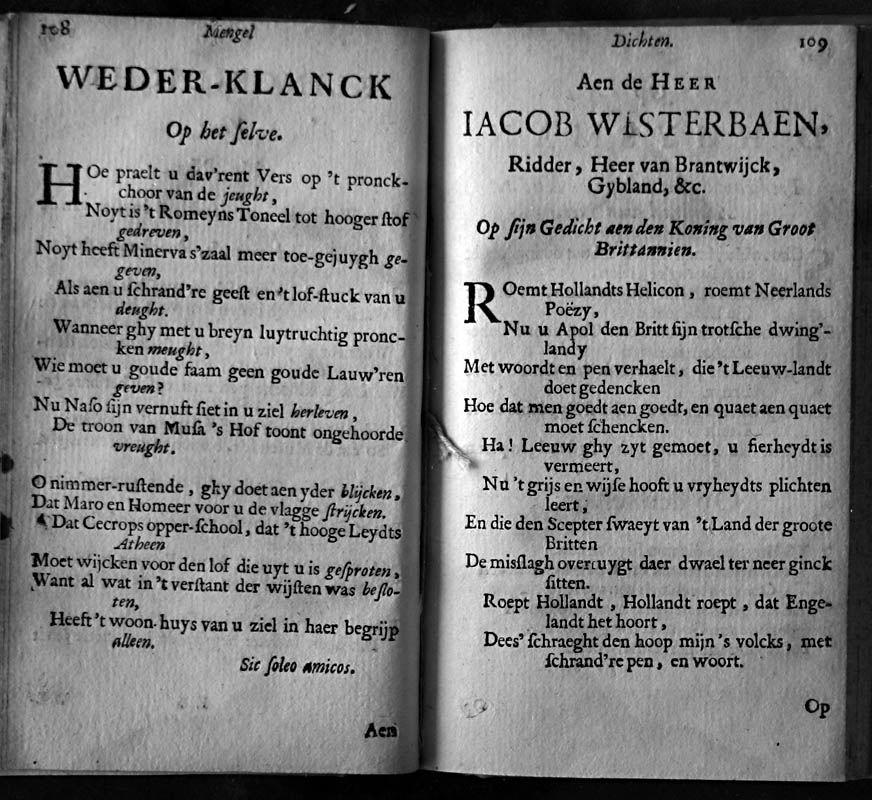 108 Mengel
WEDER-KLANCK
Op het ſelve.
HOe praelt u dav'rent Vers op 't pronck-
choor van de jeught,
Noyt is 't Romeyns Toneel tot hooger ſtof
gedreven,
Noyt heeft Minerva s'zaal meer toe-gejuygh ge-
geven,
Als aen u ſchrand're geeſt en 't lof-ſtuck van u
deught.
Wanneer ghy met u breyn luytruchtig pronc-
ken meught,
Wie moet u goude faam geen goude Lauw'ren
geven?
Nu Naſo ſijn vernuft ſiet in u ziel herleven,
De troon van Muſa 's Hof toont ongehoorde
vreught.
O nimmer-ruſtende, ghy doet aen yder blijcken,
Dat Maro en Homeer voor u de vlagge ſtrijcken.
Dat Cecrops opper-ſchool, dat 't hooge Leydts
Atheen
Moet wijcken voor den lof die uyt u is geſproten,
Want al wat in 't verſtant der wijſten was beſlo-
ten,
Heeft 't woon-huys van u ziel in haer begrijp
alleen.
Sic ſoleo amicos.
Aen
Dichten. 109
Aen de HEER
IACOB WESTERBAEN,
Ridder, Heer van Brantwijck,
Gybland, &c.
Op ſijn Gedicht aen den Koning van Groot
Brittannien.
ROemt Hollandts Helicon, roemt Neerlands
Poëzy,
Nu u Apol den Britt ſijn trotſche dwing'-
landy
Met woordt en pen verhaelt, die 't Leeuw-landt
doet gedencken
Hoe dat men goedt aen goedt, en quaet aen quaet
moet ſchencken.
Ha! Leeuw ghy zyt gemoet, u fierheydt is
vermeert,
Nu 't grijs en wijſe hooft u vryheydts plichten
leert,
En die den Scepter ſwaeyt van 't Land der groote
Britten
De misſlagh overtuygt daer dwael ter neer ginck
ſitten.
Roept Hollandt, Hollandt roept, dat Enge-
landt het hoort,
Dees' ſchraeght den hoop mijn 's volcks, met
ſchrand're pen, en woort.
Op